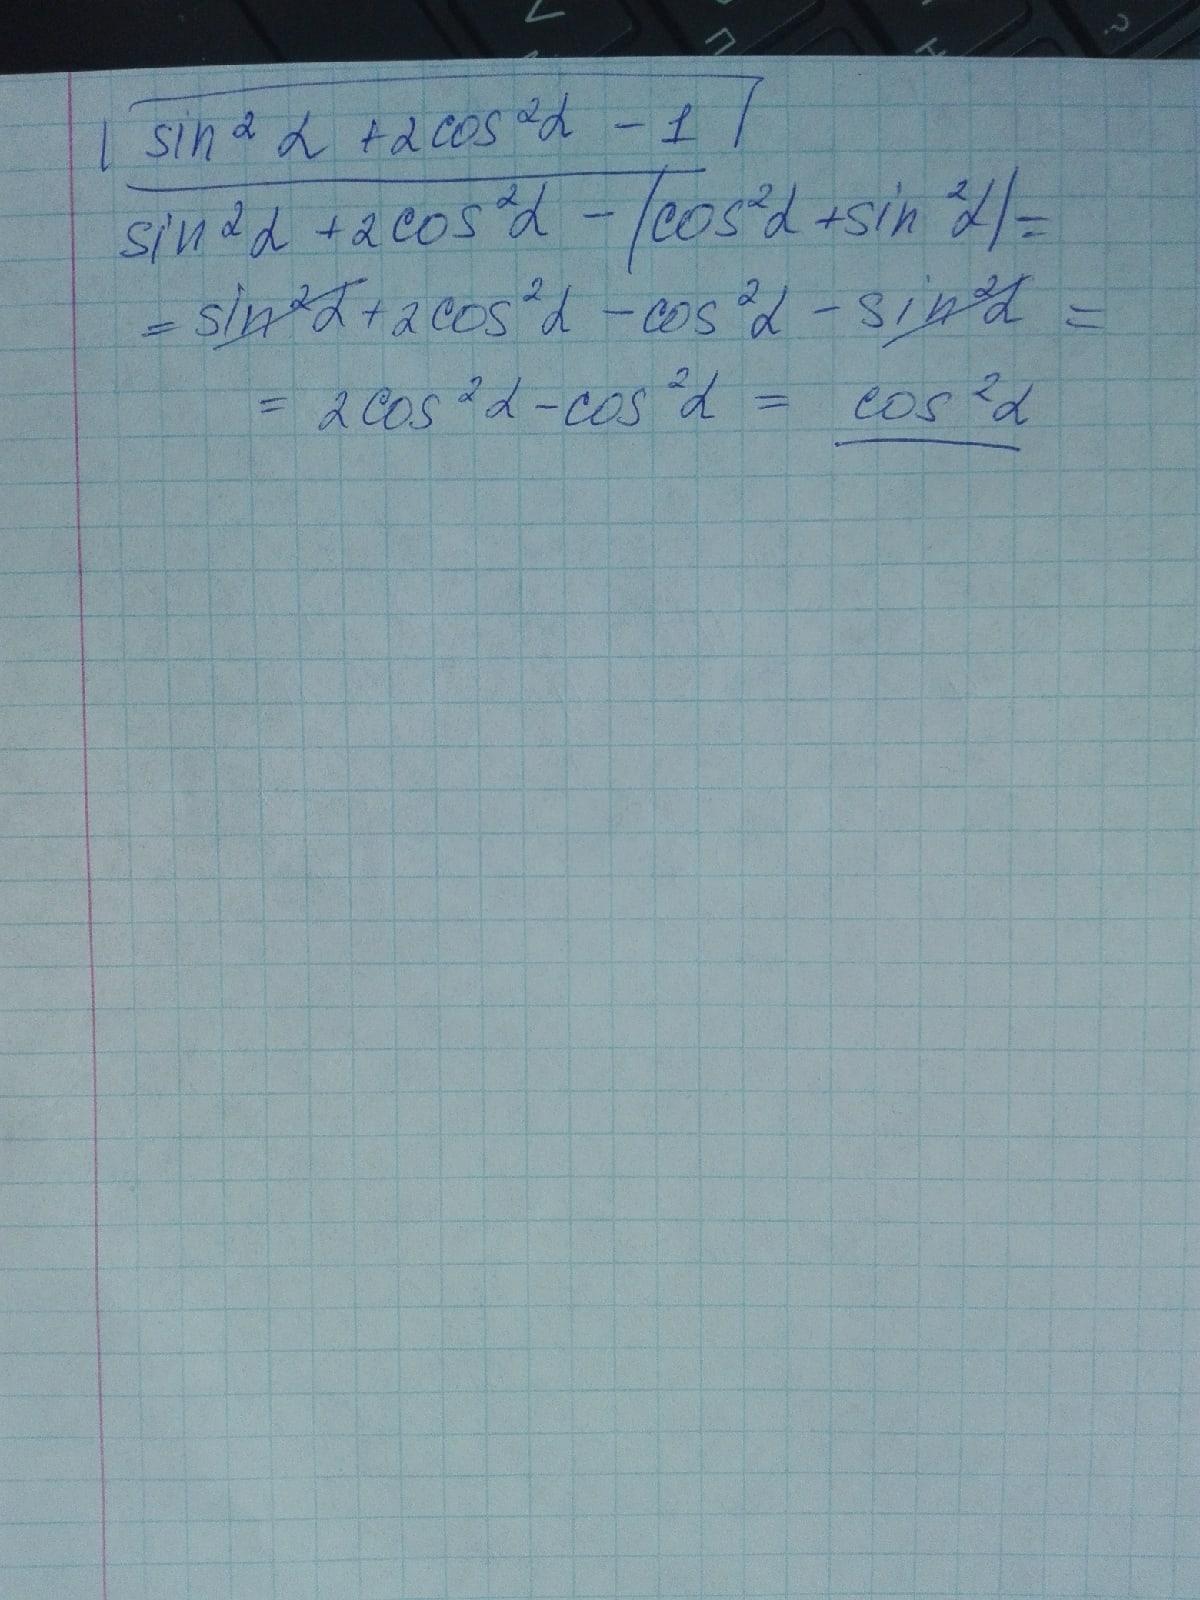 sin²α + 2cos²α - 1
sin²α + 2cos²α - (cos²α + sin²α) =
= sin²α + 2cos²α - cos²α - sin²α =
= 2cos²α - cos²α = cos²α